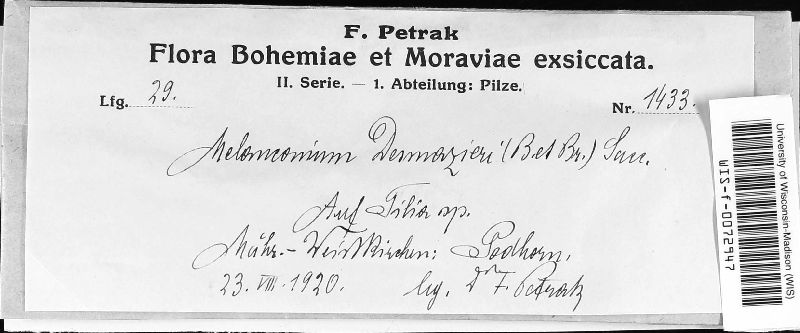 F. Petrak
Flora Bohemiae et Moraviae exsiccata.
II. Serie. — 1. Abteilung: Pilze.
Lfg. 29.
Nr. 1433.
Melanconium Desmazieri (B. et Br.) Sacc.
Auf Tilia sp.
Mähr.-Weisskirchen: Podhorn,
23. VIII. 1920. leg. Dr F. Petrak
University of Wisconsin-Madison (WIS)
WIS-f-0072947